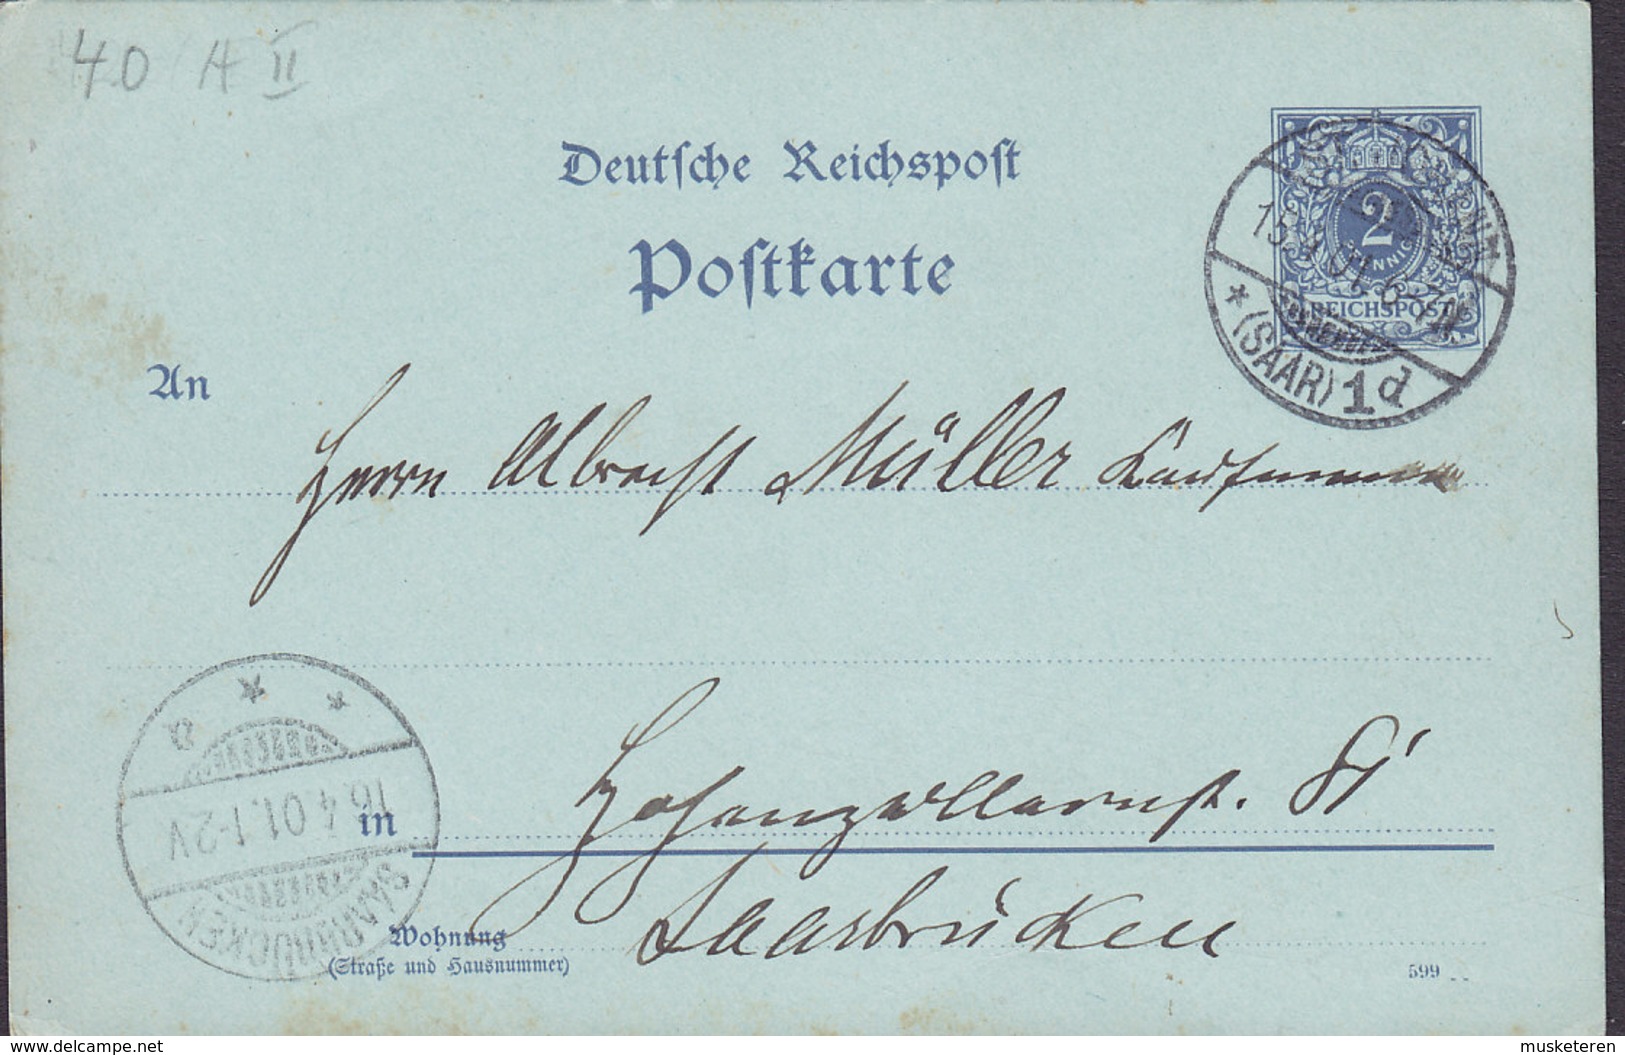 40 A II
Deutsche Reichspost
Postkarte
2
REICHSPOST
15.4.01. 6-7N
* (SAAR) 1d
An
Herrn Albrecht Müller Kaufmann
a
16.4.01.1-2V
SAARBRÜCKEN
in
Hohenzollernst. 81
Saarbrücken
Wohnung
(Straße und Hausnummer)
599
www.delcampe.net
musketeren